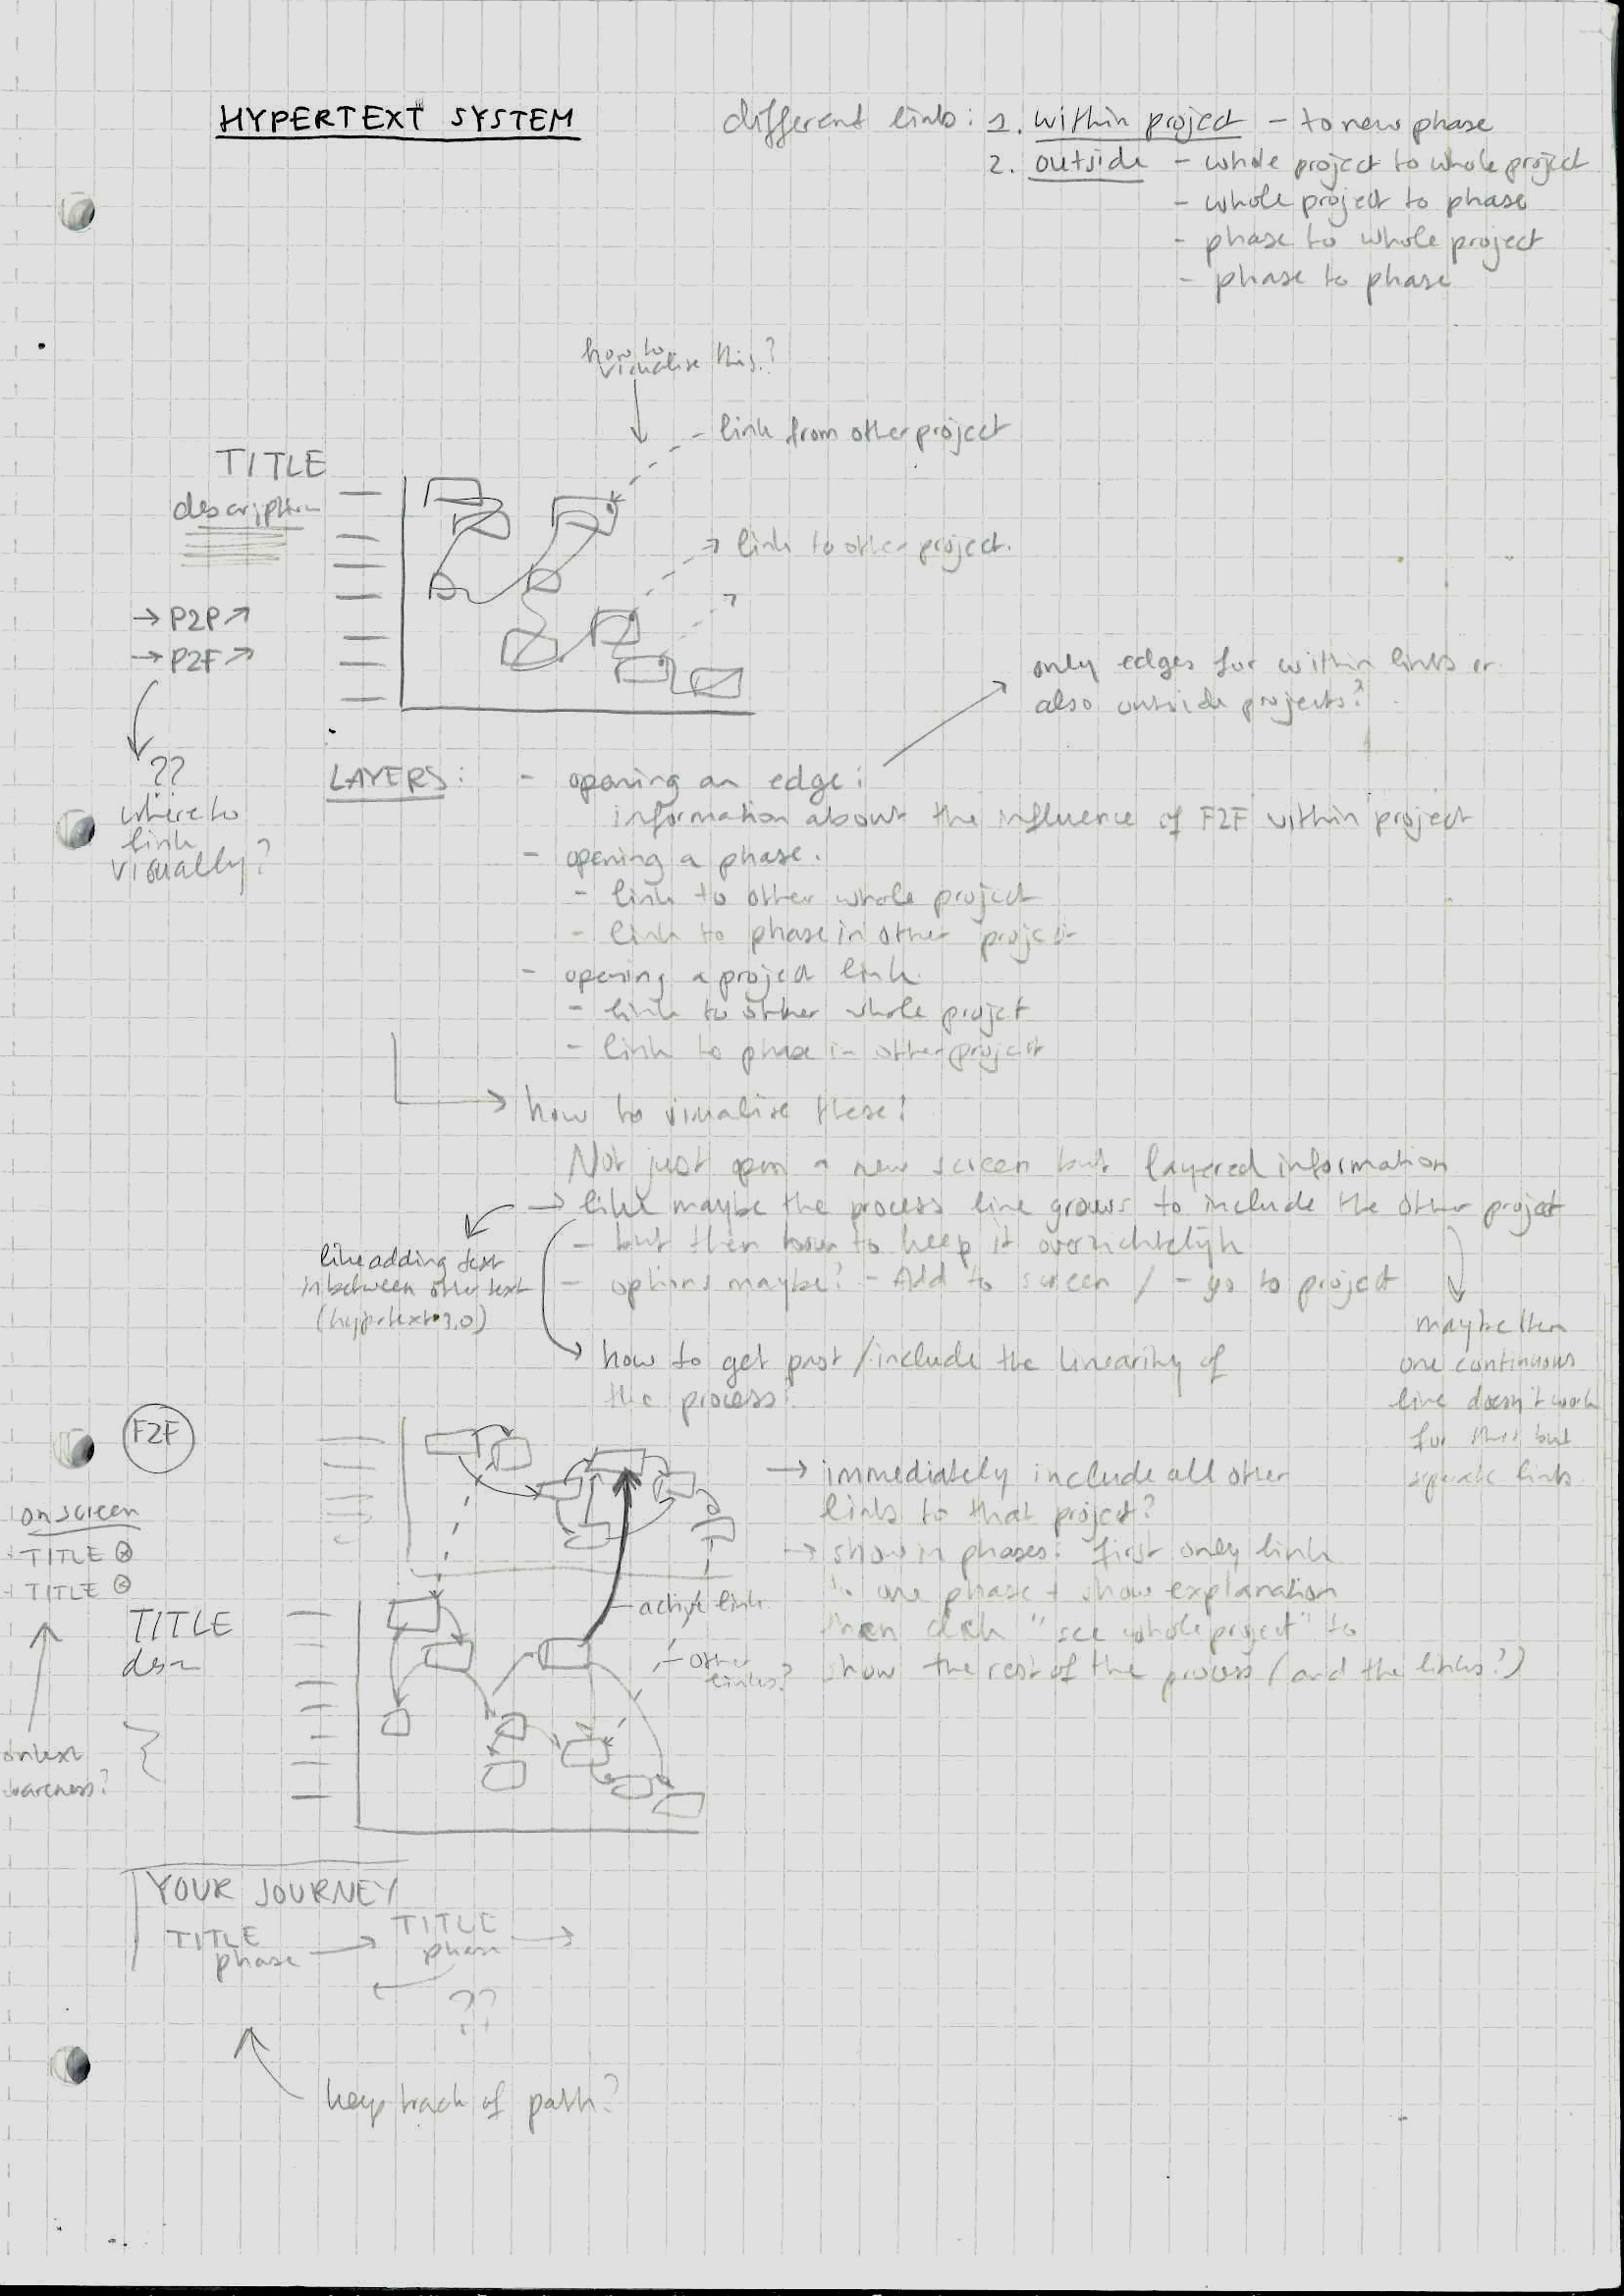 HYPERTEXT SYSTEM
different links: 1. within project - to new phase
2. outside - whole project to whole project
- whole project to phase
- phase to whole project
- phase to phase
how to
visualise this?
- link from other project
TITLE
description
link to other project.
→ P2P ↗
→ P2F ↗
??
where to
link
visually?
only edges for within links or
also outside projects?
LAYERS: - opening an edge:
information about the influence of F2F within project
- opening a phase.
- link to other whole project
- link to phase in other project
- opening a project link
- link to other whole project
- link to phase in other project
→ how to visualise these?
Not just open a new screen but layered information
→ like maybe the process line grows to include the other project
- but then how to keep it
- options maybe? - Add to screen / - go to project
like adding text
in between other text
(hypertext 3.0)
→ how to get past / include the linearity of
the process?
maybe then
one continuous
line doesn't work
for this but
separate links
F2F
on screen
+ TITLE ⊗
+ TITLE ⊗
→ immediately include all other
links to that project?
→ show in phases: first only link
to one phase + show explanation
then click "see whole project" to
show the rest of the process (and the links?)
- active link
- other
links?
TITLE
desc
YOUR JOURNEY
TITLE
phase
→ TITLE
phase →
??
keep track of path?